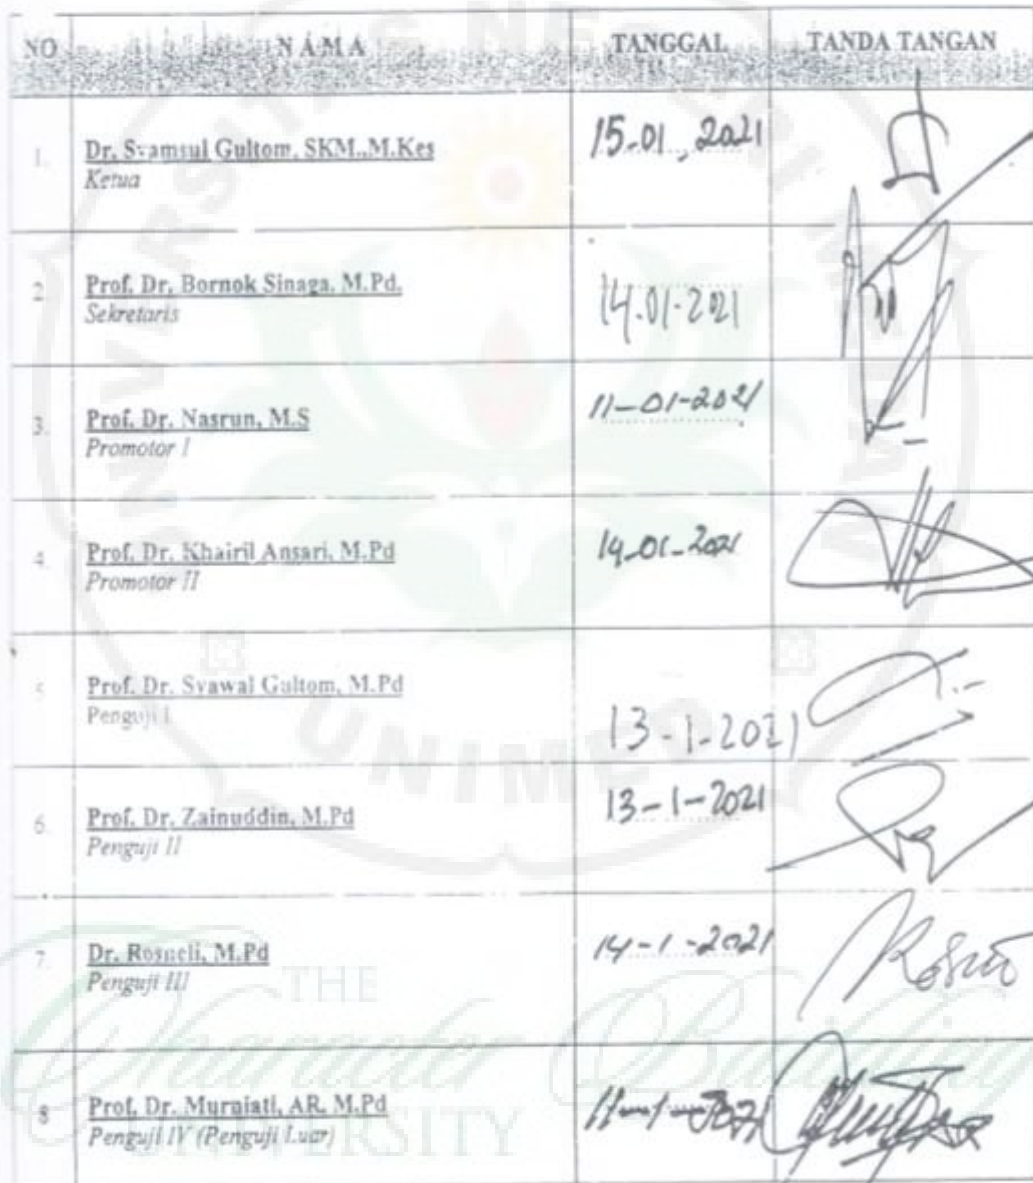 NO
NAMA
TANGGAL
TANDA TANGAN
1.
Dr. Syamsul Gultom, SKM.,M.Kes
Ketua
15-01, 2021
2
Prof. Dr. Bornok Sinaga, M.Pd.
Sekretaris
14.01-2021
3.
Prof. Dr. Nasrun, M.S
Promotor I
11-01-2021
4.
Prof. Dr. Khairil Ansari, M.Pd
Promotor II
14-01-2021
5
Prof. Dr. Syawal Gultom, M.Pd
Penguji I
13-1-2021
6.
Prof. Dr. Zainuddin, M.Pd
Penguji II
13-1-2021
7.
Dr. Rosneli, M.Pd
Penguji III
14-1-2021
8
Prof. Dr. Murniati, AR. M.Pd
Penguji IV (Penguji Luar)
11-1-2021
UNIVERSITAS NEGERI MEDAN
UNIMED
THE
Character Building
UNIVERSITY